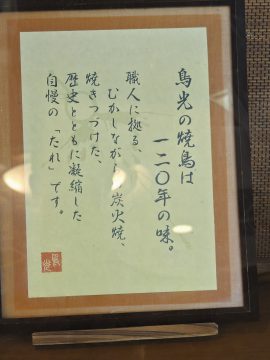 鳥光の焼鳥は
一二〇年の味。
職人に拠る、
むかしながらの炭火焼、
焼きつづけた、
歴史とともに凝縮した
自慢の「たれ」です。